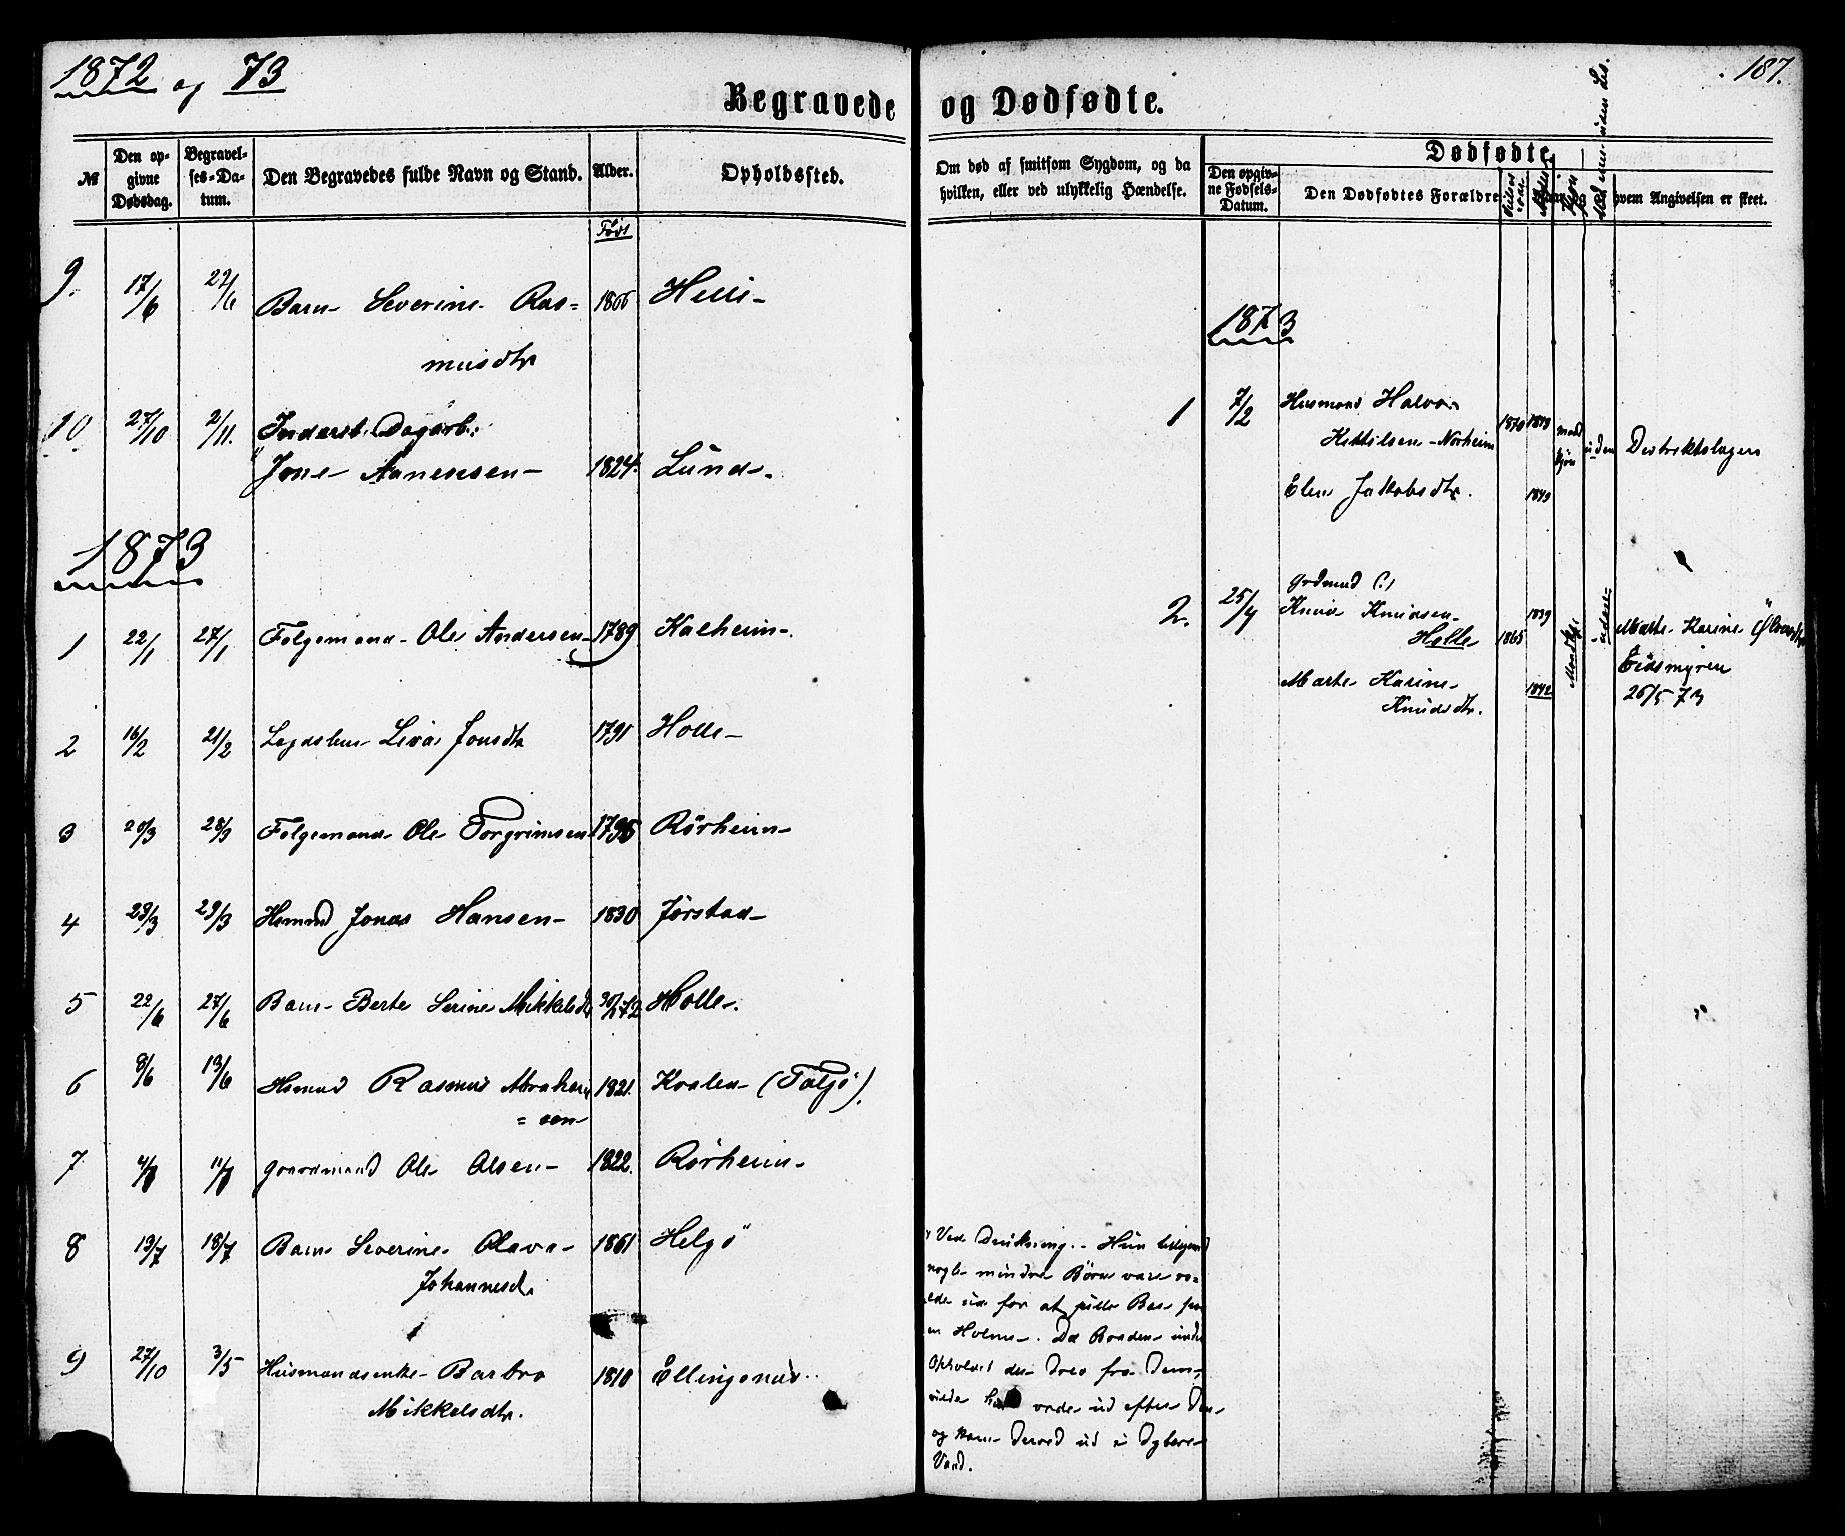 1872 og 73
187.
Begravede og Dødfødte.
№
Den opgivne Dødsdag.
Begravelses-Datum.
Den Begravedes fulde Navn og Stand.
Alder.
Opholdssted.
Om død af smitsom Sygdom, og da hvilken, eller ved ulykkelig Hændelse.
Dødfødte
Den opgivne Fødsels-Datum.
Den Dødfødtes Forældre
hvem Angivelsen er skeet.
Født
9. 17/6 22/6 Barn Severine Ras=
musdtr 1866
10 27/10 2/11. Inderst. Dagarb:
Jone Aanensen 1824. Lund.
1873
1 22/1 27/1 Følgemand Ole Andersen 1789
2 16/2 21/2 Jonsdtr 1791 Holle
3 20/3 28/3 Følgemand Ole Torgrimsen Rørheim
4 23/3 29/3 Hsmnd Jonas Hansen 1830 Jørstad
5 22/6 27/6 Barn Berte Serine Mikkelsdtr Holle.
6 8/6 13/6 Hsmnd Rasmus Abraham
=sen 1821. Kvalen
7 Gaardmand Ole Olsen 1822. Rørheim
8 13/7 18/7 Barn Severine Olava
Johannesd. 1861 Helgø
9 27/10 3/5 Husmandsenke Barbro
Mikkelsdtr. 1810
Ved Drukning. Hun tilligemed
nogle mindre Børn vare ro=
ede ud for at pille Bær paa
en Holme. Da Baaden under
Opholdet der drev fra dem,
vilde hun vade ud efter den
og kom derved ud i dybere
Vand.
1873
1 7/2 Husmand Halvor
Kittilsen Norheim 1870 1849
uden Distriktslægen
Elen Jakobsdtr. 1849
2. 25/4 Grdmnd (:)
Knud Knudsen
Holle 1865 1839
Marte Karine
Knudsdtr. 1842
Marte Karine
Eidsmyren
26/5 73